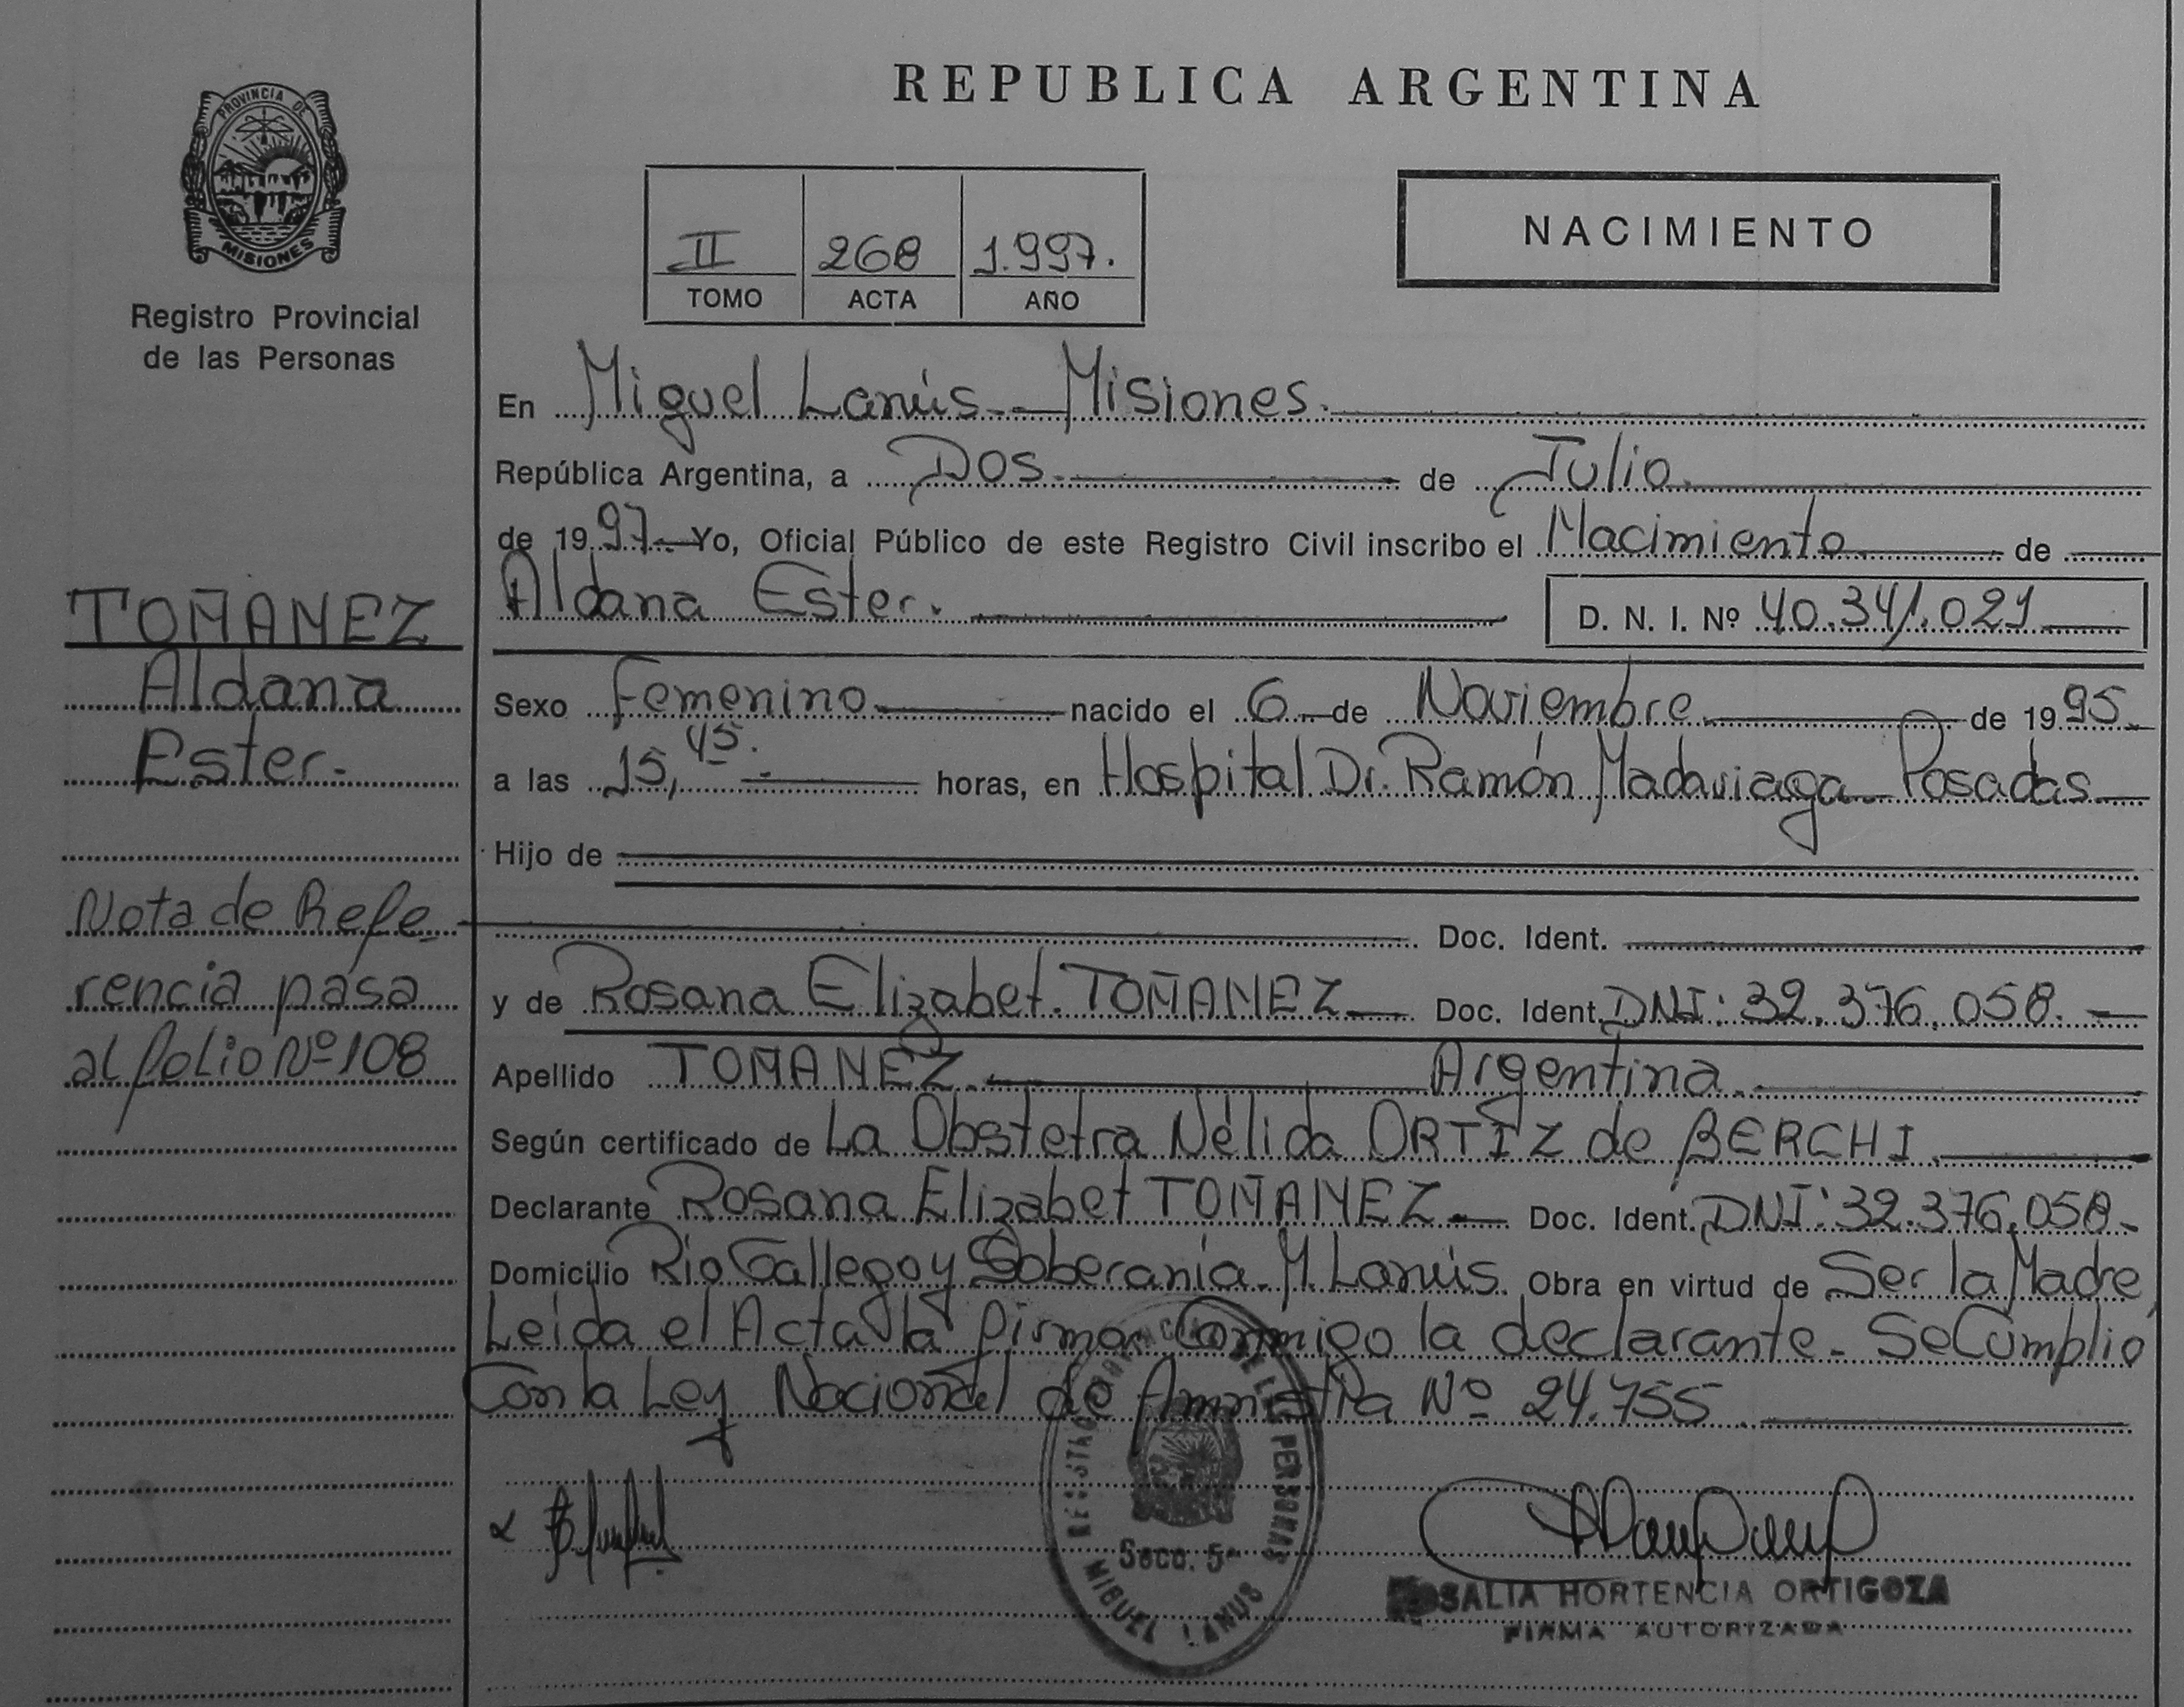 PROVINCIA DE
MISIONES
Registro Provincial
de las Personas
TOÑANEZ
Aldana
Ester.-
Nota de Refe-
rencia pasa
al folio Nº 108
REPUBLICA ARGENTINA
II 268 1.997.
TOMO ACTA AÑO
NACIMIENTO
En Miguel Lanús - Misiones.
República Argentina, a Dos. de Julio.
de 1997 Yo, Oficial Público de este Registro Civil inscribo el Nacimiento de
Aldana Ester. D. N. I. Nº 40.341.021
Sexo Femenino nacido el 6 de Noviembre de 1995.
a las 15,45. horas, en Hospital Dr. Ramón Madariaga - Posadas
Hijo de
Doc. Ident.
y de Rosana Elizabet. TOÑANEZ Doc. Ident. DNI: 32.376.058.
Apellido TOÑANEZ. Argentina.
Según certificado de La Obstetra Nélida ORTIZ de BERCHI.
Declarante Rosana Elizabet TOÑANEZ Doc. Ident. DNI: 32.376.058.-
Domicilio Rio Gallego y Soberanía. M. Lanús. Obra en virtud de Ser la Madre,
Leida el Acta la firma Conmigo la declarante. Se Cumplió
Con la Ley Nacional de Amnistia Nº 24.755
REGISTRO PROVINCIAL DE LAS PERSONAS
Secc. 5ª
MIGUEL LANUS
ROSALIA HORTENCIA ORTIGOZA
FIRMA AUTORIZADA